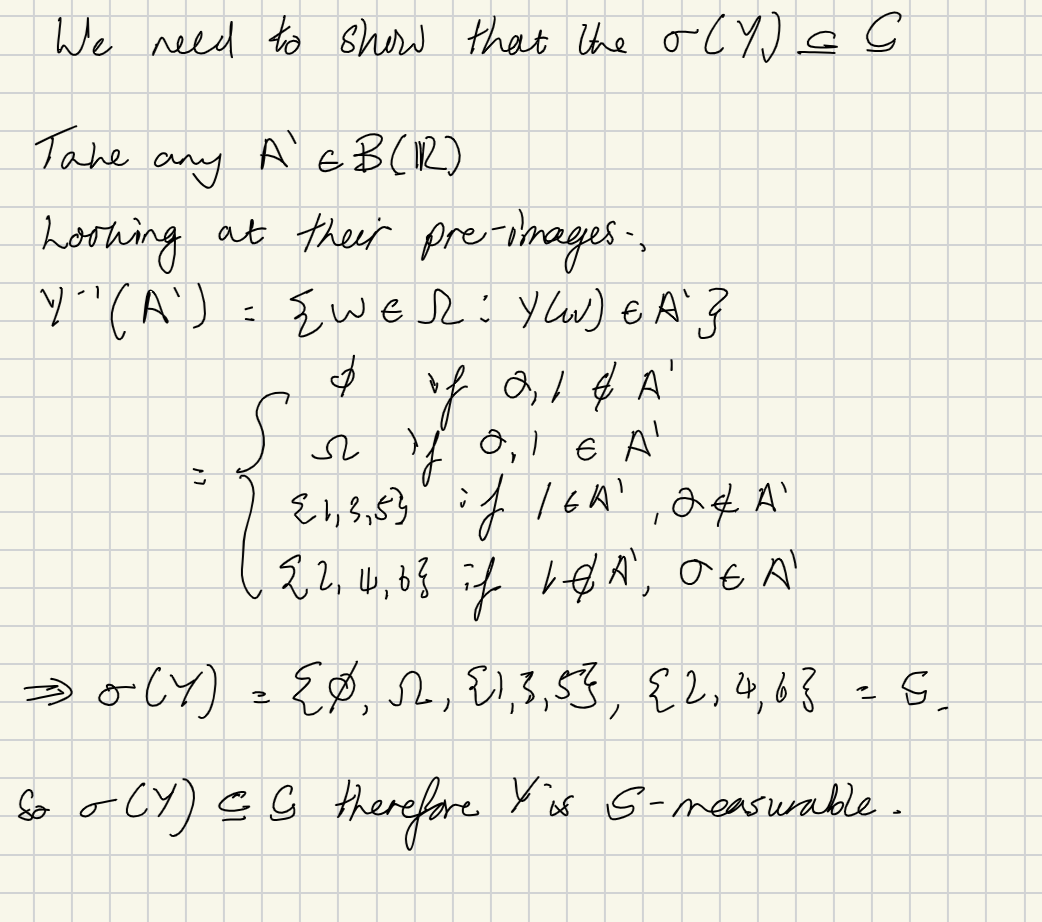 We need to show that the σ(Y) ⊆ G
Take any A' ∈ B(ℝ)
Looking at their pre-images.,
Y⁻¹(A') = {ω ∈ Ω : Y(ω) ∈ A'}
= { ∅ if 0,1 ∉ A'
Ω if 0,1 ∈ A'
{1,3,5} if 1 ∈ A', 0 ∉ A'
{2,4,6} if 1 ∉ A', 0 ∈ A'
⇒ σ(Y) = {∅, Ω, {1,3,5}, {2,4,6} = G.
So σ(Y) ⊆ G therefore Y is G-measurable.